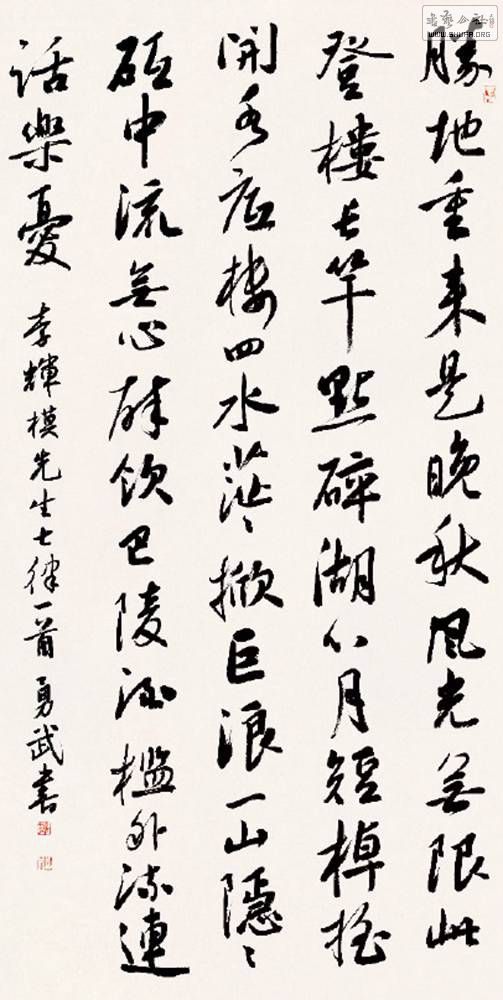 書藝公社
WWW.SHUFA.ORG
勝地重来是晚秋風光無限此
登樓長竿點碎湖心月短棹搖
開水底樓四水茫々掀巨浪一山隱々
砥中流無心醉飲巴陵酒檻外流連
話樂憂
李輝模先生七律一首勇武書